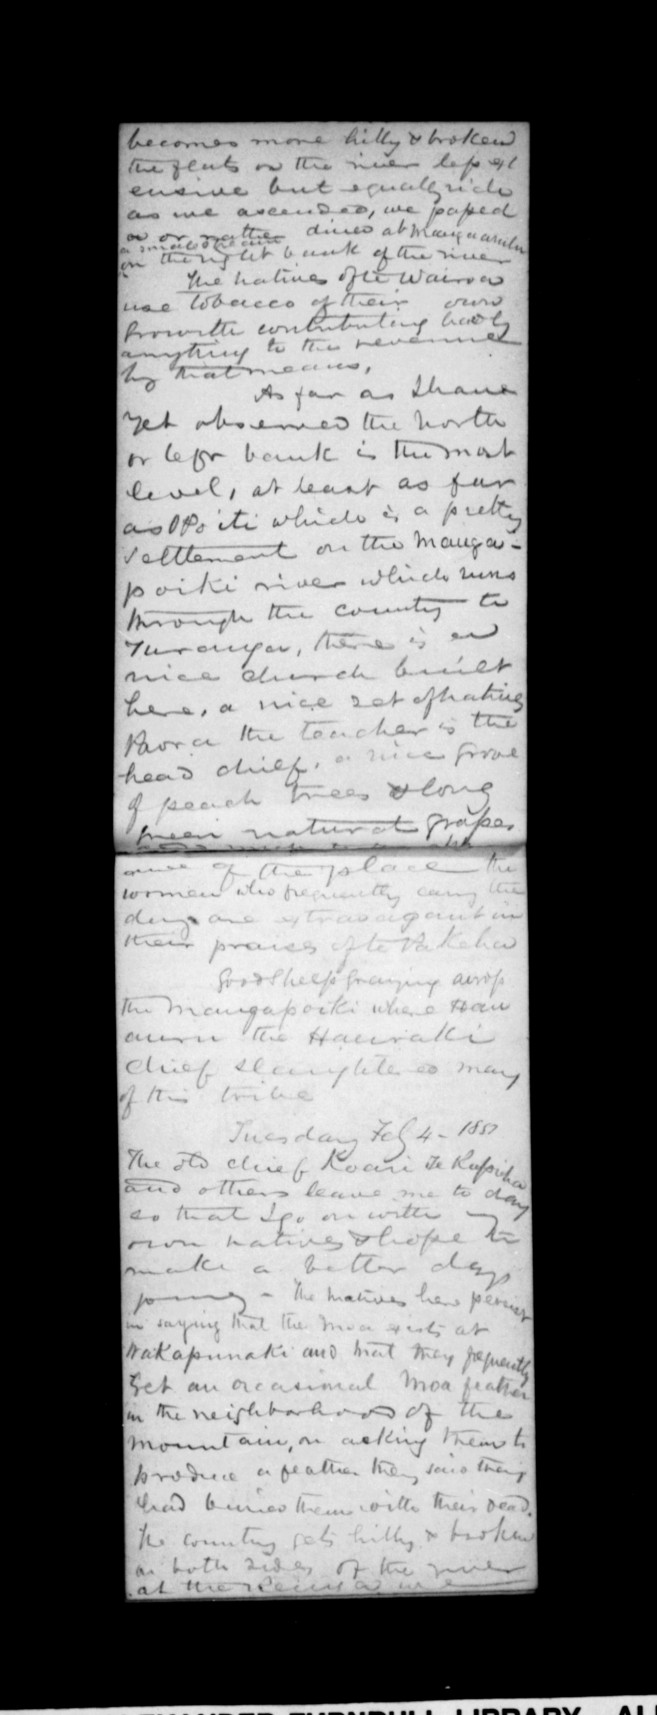 becomes more hilly & broken
the flats on the river less ext
ensive but equally rich
as we ascended, we passed
on or rather dined at Mangaaruhe
a small stream
on the right bank of the river
The natives of te Wairoa
use tobacco of their own
growth contributing hardly
anything to the revenue
by that means.
As far as I have
yet observed the north
or left bank is the most
level, at least as far
as Opoiti which is a pretty
settlement on the Manga-
poiki river which runs
through the country to
Turanga, there is a
nice church built
here, a nice set of natives
Paora the teacher is the
head chief, a nice grove
of peach trees & long
green natural grapes
of the place the
women who frequently carry the
are extravagant in
their praises of te Pakeha
Good sheep grazing across
the Mangapoiki where Hau
auru the Hauraki
chief slaughtered many
of this tribe
Tuesday Feb 4 - 1851
The old chief Koari Te
and others leave me to day
so that I go on with my
own natives & hope to
make a better days
journey - The natives here persist
in saying that the Moa exists at
Wakapunaki and that they frequently
get an occasional Moa feather
in the neighborhood of the
mountain, on asking them to
produce a feather they said they
had buried them with their dead.
The country gets hilly & broken
on both sides of the river
at the Reinga we
LIBRARY